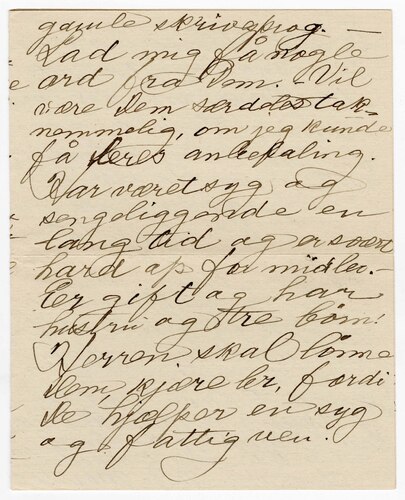 gamle skrivsprog. —
Lad mig få nogle
ord fra Dem. Vil
være Dem særdeles tak-
nemmelig, om jeg kunde
få Deres anbefaling.
Har været syg og
sengeliggende en
lang tid og er svært
hard op for midler.
Er gift og har
hustru og tre børn!
Herren skal lønne
Dem, kjære br, fordi
De hjælper en syg
og fattig ven.